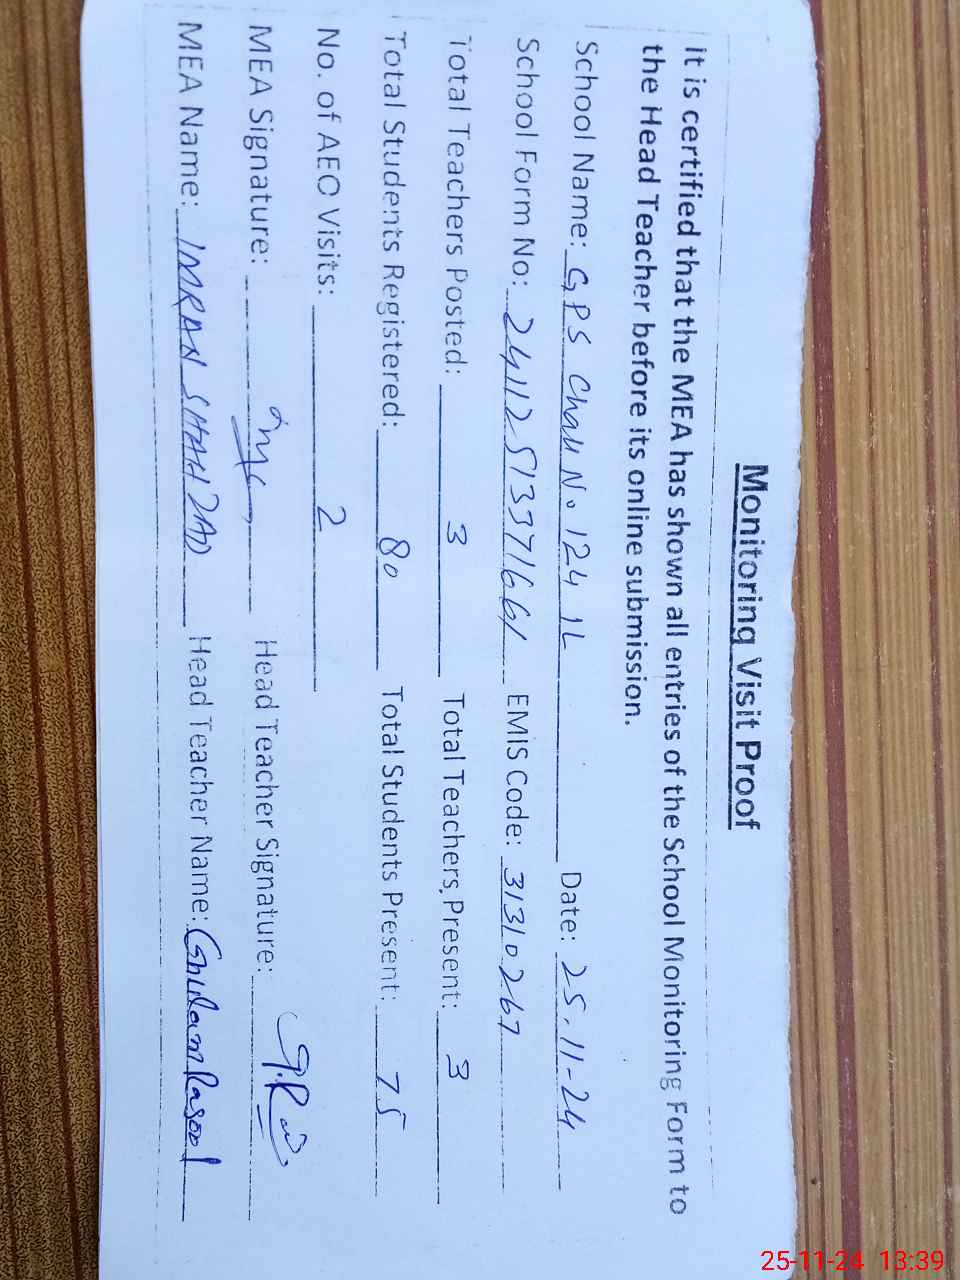 Monitoring Visit Proof
It is certified that the MEA has shown all entries of the School Monitoring Form to
the Head Teacher before its online submission.
School Name: GPS Chak No 124 1L Date: 25-11-24
School Form No: 241125133771661 EMIS Code: 31310267
Total Teachers Posted: 3 Total Teachers Present: 3
Total Students Registered: 80 Total Students Present: 75
No. of AEO Visits: 2
MEA Signature: Head Teacher Signature:
MEA Name: IMRAN SHAHZAD Head Teacher Name: Ghulam Rasool
25-11-24 13:39